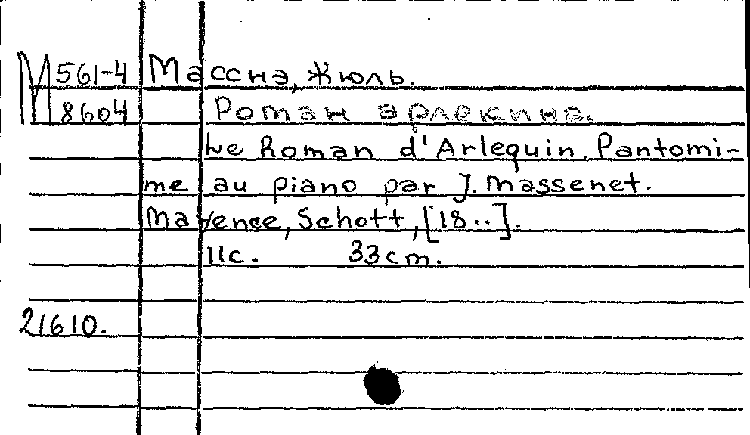 М 561-4 Массна, Жюль.
8604 Роман арлекина.
Le Roman d'Arlequin. Pantomi-
me au piano par J. Massenet.
Mayence, Schott, [18..].
11с. 33cm.
21610.